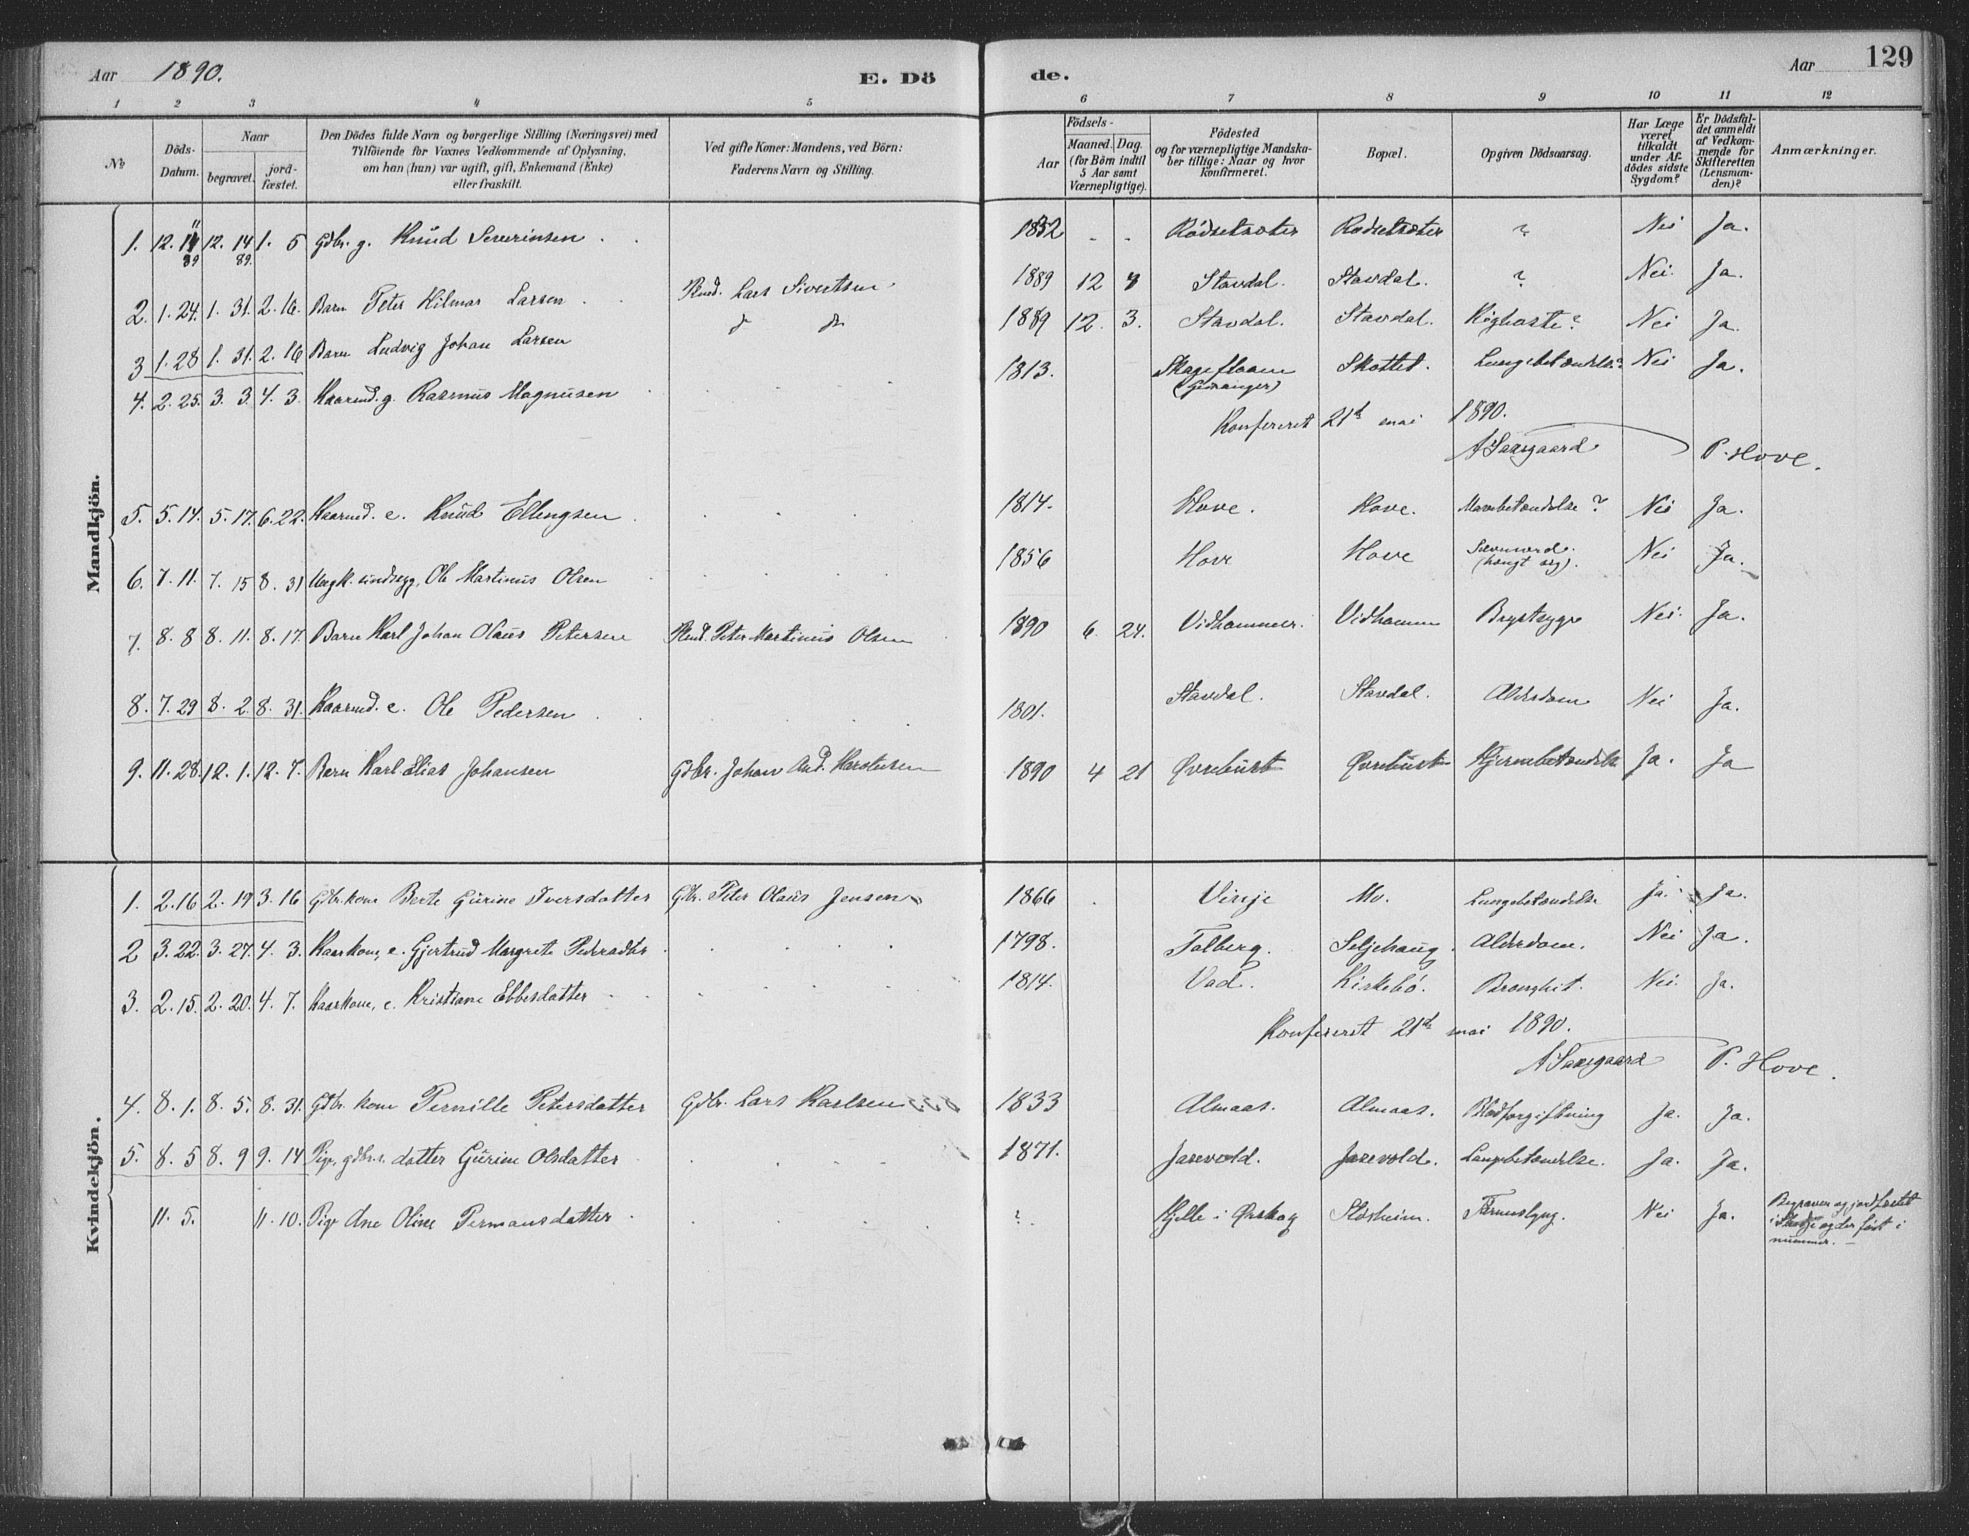 Aar 1890. E. Dö de. Aar 129
1 2 3 4 5 6 7 8 9 10 11 12
No
Döds-Datum.
Naar
begravet.
jord-fæstet.
Den Dödes fulde Navn og borgerlige Stilling (Næringsvei) med
Tilföiende for Voxnes Vedkommende af Oplysning,
om han (hun) var ugift, gift, Enkemand (Enke)
eller fraskilt.
Ved gifte Koner: Mandens, ved Börn:
Faderens Navn og Stilling.
Födsels-
Aar
Maaned. Dag.
(for Börn indtil
5 Aar samt
Værnepligtige).
Födested
og for værnepligtige Mandska-
ber tillige: Naar og hvor
Konfirmeret.
Bopæl.
Opgiven Dödsaarsag.
Har Læge
været
tilkaldt
under Af-
dödes sidste
Sygdom?
Er Dödsfal-
det anmeldt
af Vedkom-
mende for
Skifteretten
(Lensman-
den)?
Anmærkninger.
Mandkjön.
1. 12. 11 89 12. 14 89. 1. 5 Gdbr. g. Knud Severinsen 1832 Rödsetsæter Rödsetsæter ? Nei Ja.
2. 1. 24. 1. 31. 2. 16. Barn Peter Hilmar Larsen Lars Sivertsen 1889 12 3 Stavdal. Stavdal. ? Nei. Ja.
3 1. 28 1. 31. 2. 16 Barn Ludvig Johan Larsen 1889 12. 3. Stavdal. Stavdal. Kighoste? Nei Ja.
4. 2. 25. 3. 3. 4. 3. Kaarmd. g. Rasmus Magnusen 1813. Skageflaam (Geiranger) Skottet. Lungebetændelse? Nei Ja.
Konfereret 21d mai 1890.
A Saxegaard P. Hove.
5. 5. 14. 5. 17. 6. 22. Kaarmd. e. Knud Ellingsen 1814. Hove. Hove. Mavebetændelse? Nei Ja.
6. 7. 11. 7. 15 8. 31 Ungk. sindssyg, Ole Martinus Olsen 1856 Hove Hove Selvmord. (hængt sig). Nei Ja.
7. 8. 8 8. 11. 8. 17. Barn Karl Johan Olaus Petersen Peter Martinus Olsen 1890 6. 24. Vidhammer. Vidhammer Brystsyge Nei. Ja.
8. 7. 29 8. 2. 8. 31. Kaarmd. e. Ole Pedersen 1801. Stavdal. Stavdal. Alderdom Nei Ja.
9. 11. 28. 12. 1. 12. 7. Barn Karl Elias Johansen Gdbr. Johan And. Karstensen 1890 4 21 Øvrebust Øvrebust Hjernebetændelse Ja. Ja
Kvindekjön.
1. 2. 16 2. 19 3. 16 Gdbr.kone Berte Gurine Iversdatter Gdbr. Peter Olaus Jensen 1866 Vinje Mo. Lungebetændelse Ja. Ja.
2 3. 22. 3. 27. 4. 3. Kaarkone, e. Gjertrud Margrete Pedersdtr 1798. Talberg. Seljehaug Alderdom. Nei Ja.
3. 2. 15. 2. 20. 4. 7. Kaarkone, e. Kristiane Ebbesdatter 1814. Vad. Kirkebö. Bronghit. Nei. Ja.
Konfereret 21d mai 1890.
A Saxegaard P. Hove.
4. 8. 1. 8. 5. 8. 31. Gdbr. kone Pernille Petersdatter Gdbr. Lars Karlsen 1833 Almaas. Almaas. Blodforgiftning Ja. Ja.
5. 8. 5 8. 9 9. 14 Pige, gdbr.s. datter Gurine Olsdatter 1871. Jarevold. Jarevold. Lungebetændelse. Ja. Ja.
11. 5. 11. 10. Pige Ane Oline Permansdatter ? Kjelle i Ørskog Slösheim. Nei Ja. Begraven og jordfæstet
i Skodje og der fört i
nummer.